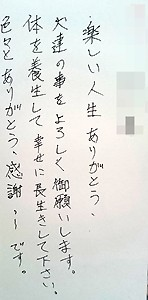 楽しい人生ありがとう、
犬達の事をよろしく御願いします。
体を養生して幸せに長生きして下さい。
色々とありがとう、感謝、、です。